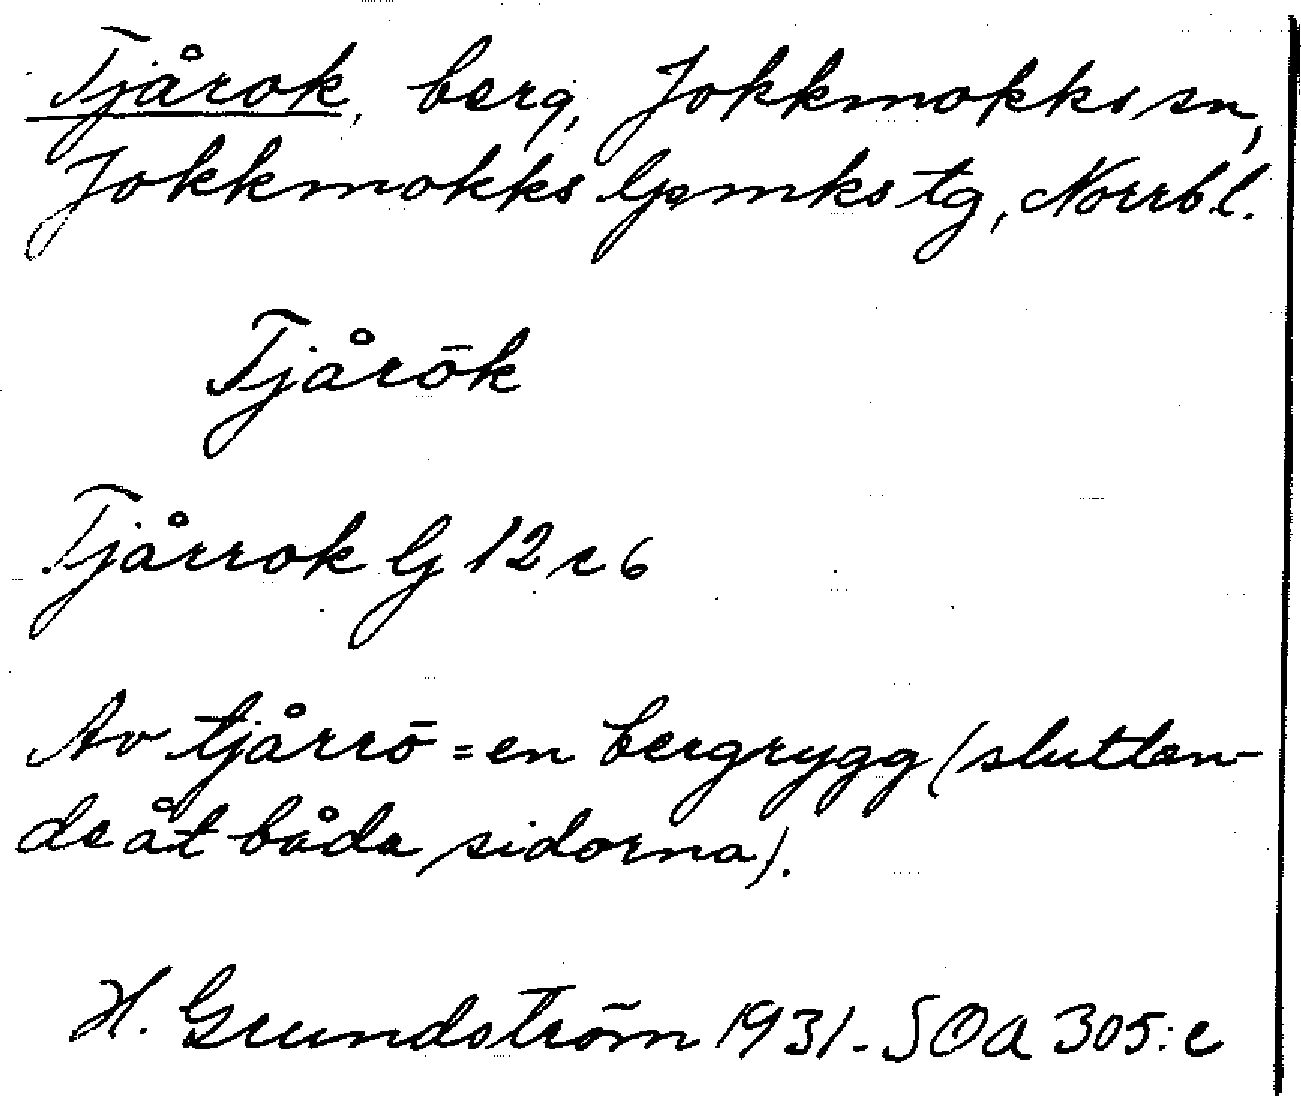 Tjårok, berg, Jokkmokks sn,
Jokkmokks lpmkstg, Norrb l.
Tjårōk
Tjårrok lj 12 c 6
Av tjårrō = en bergrygg (sluttan-
de åt båda sidorna).
H. Grundström 1931. SOA 305:c